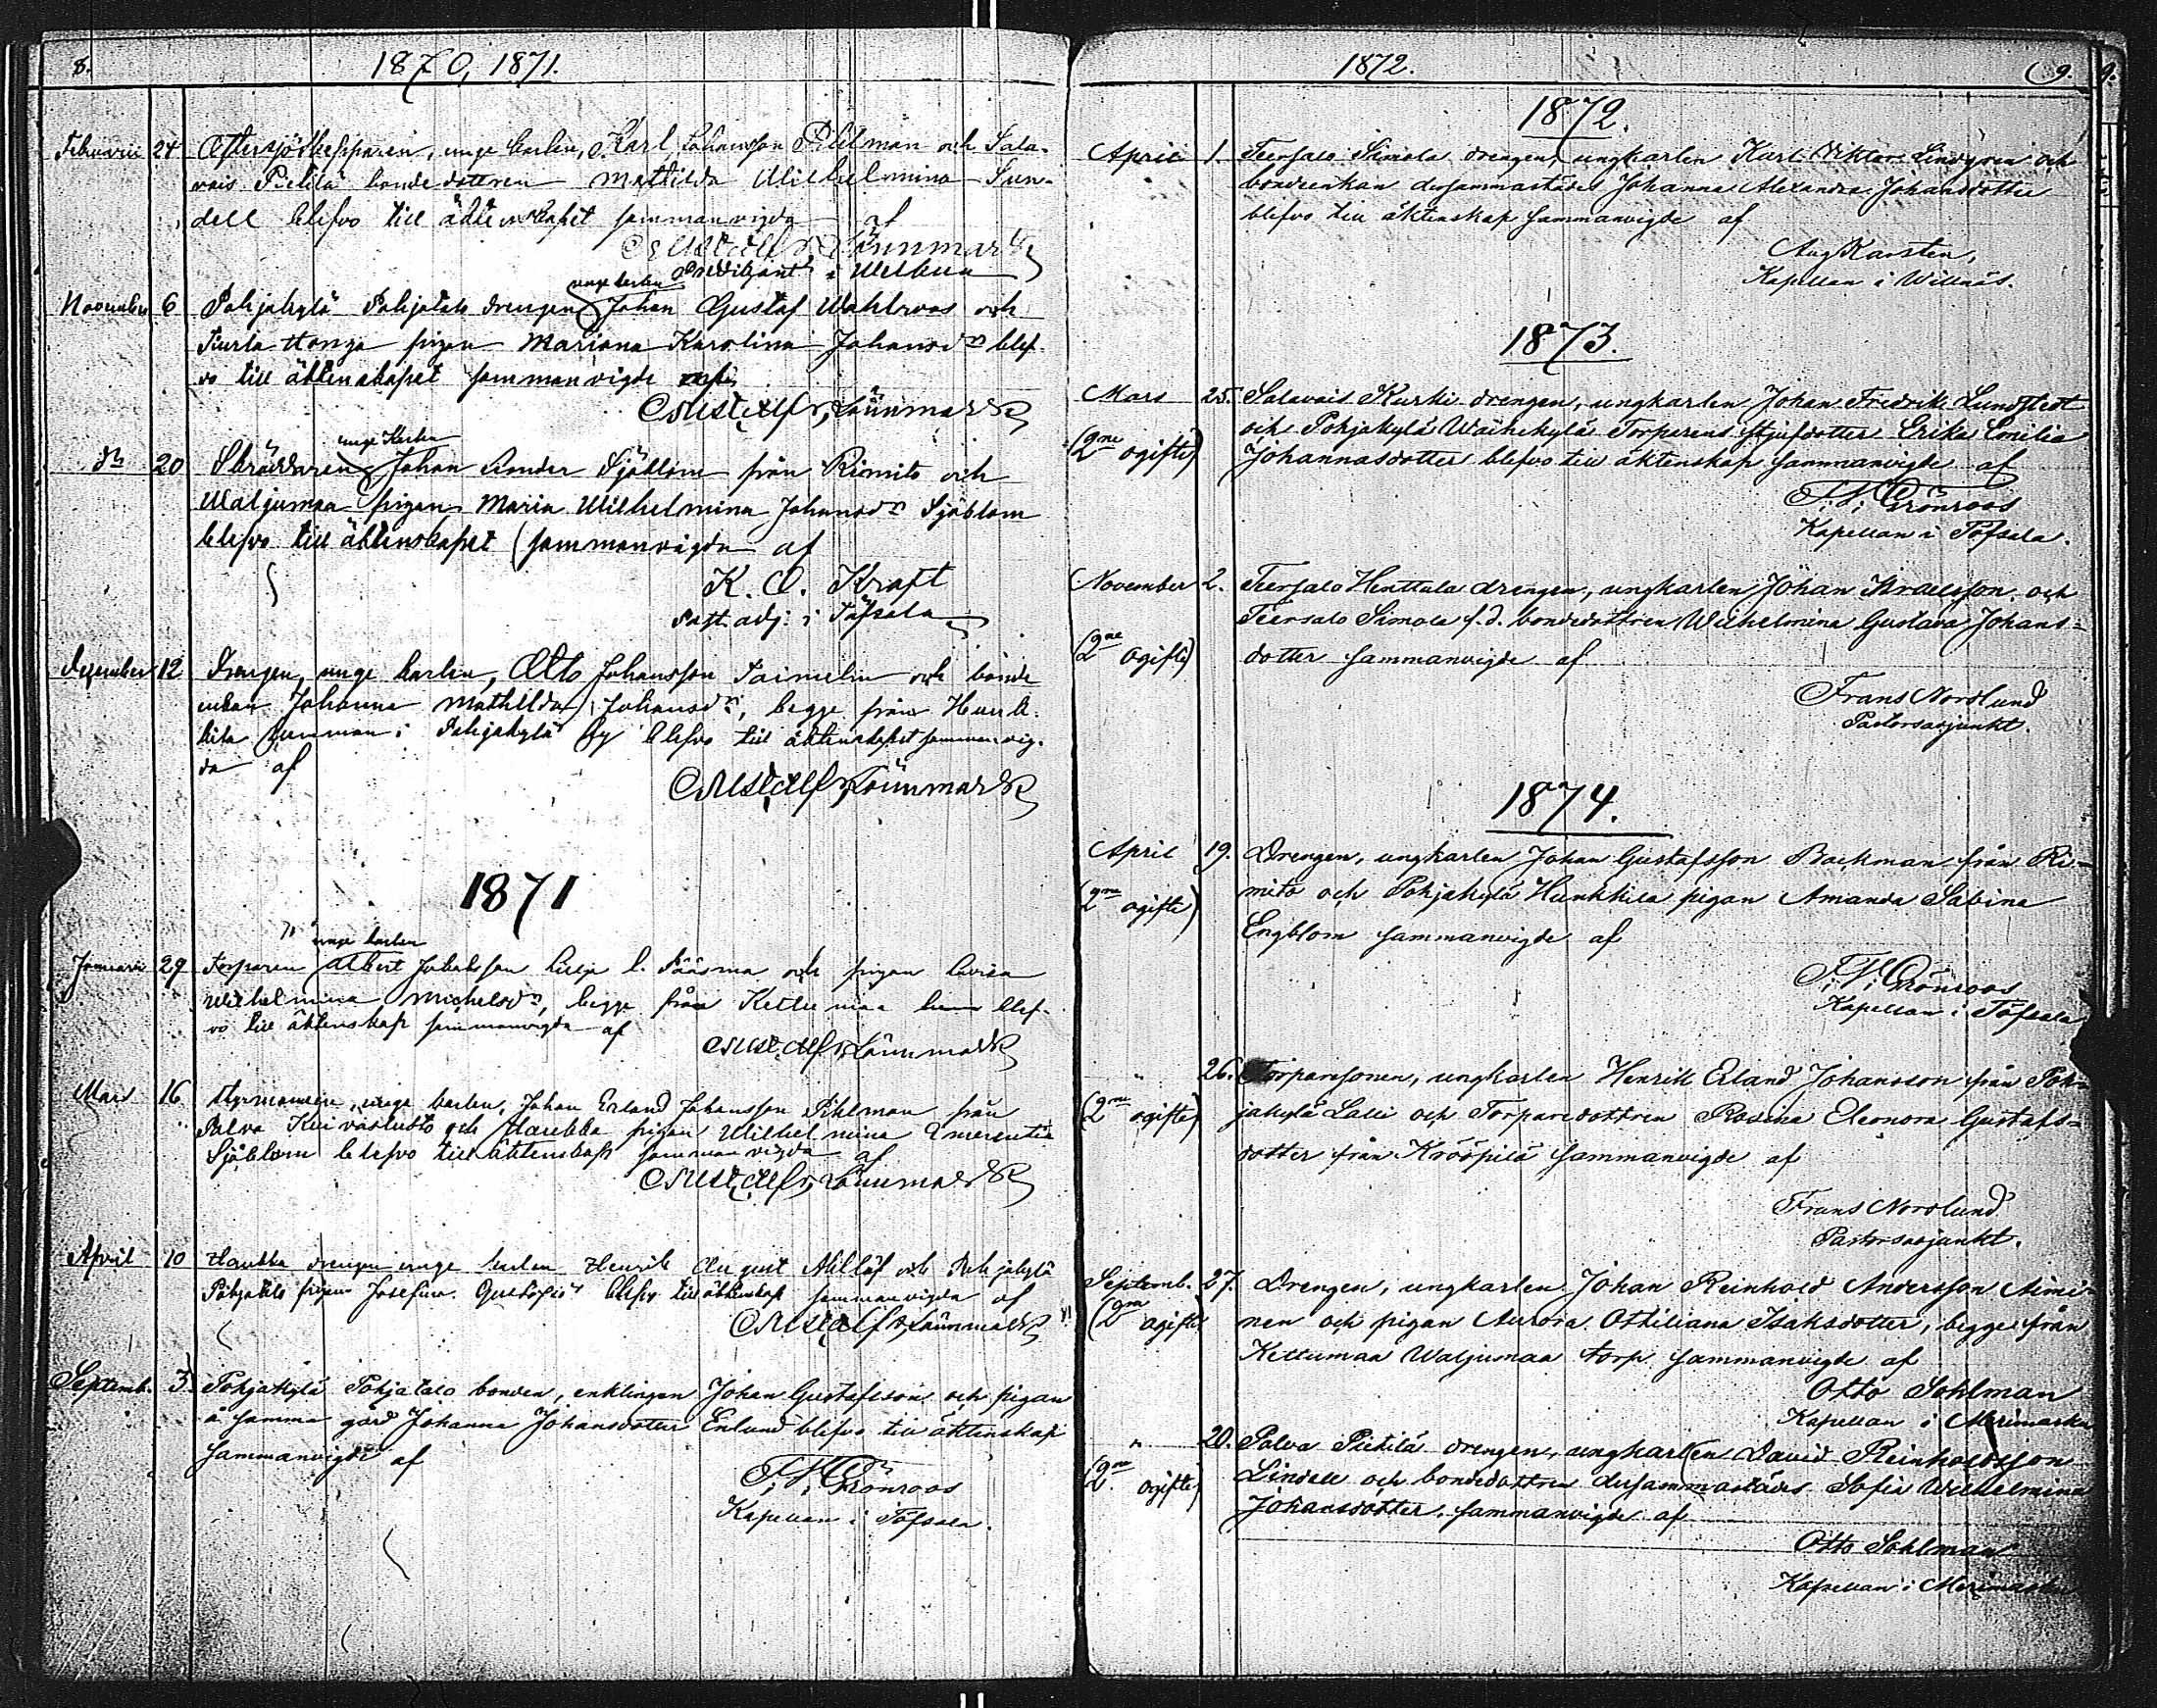 8.
1870, 1871.
Februarii 24 Öfversjöskepparen, unge karlen, Karl Johansson Pihlman och Sala-
vais Pietilä bondedottren Mathilda Wilhelmina Sun-
dell blefvo till äktenskapet sammanvigda af
Gust. Alfr. Lönnmark
Predikant i Welkua
unge karlen
November 6 Pohjakylä Pohjatalo drengen Johan Gustaf Wahlroos och
pigan Mariana Karolina Johansdr blef-
vo till äktenskapet sammanvigde af
Gust. Alf. Lönnmark
unge karlen
dn 20 Skräddaren Johan Ander Sjöblom från Rimito och
Waljumaa pigan Maria Wilhelmina Johansdr Sjöblom
blefvo till äktenskapet sammanvigda af
K. O. Kraft
Past. adj. i Töfsala
December 12 Drengen, unge karlen, Otto Johansson Saimelin och bonde
enkan Johanna Mathilda Johansdr, begge från Hunk-
kila hemman i Pohjakylä by blefvo till äktenskapet sammanvig-
da af
Gust. Alf. Lönnmark
1871
unge karlen
Januarii 29 Torparen Albert Jakobsson Lilja l. Pääsma och pigan Lovisa
Wilhelmina Michelsdr, begge från Kettumaa blef-
vo till äktenskap sammanvigda af
Gust. Alf. Lönnmark
Mars 16 unge karlen, Johan Erland Johansson Pihlman från
Palva Kuivasluoto och Haukka pigan Wilhelmina Emerentia
Sjöblom blefvo till äktenskap sammanvigda af
Gust. Alf. Lönnmark
April 10 Haukka drengen unge karlen Henrik August Millöf och Pohjakylä
Pohjatalo pigan Josefina Gustafsdr blefvo till äktenskap sammanvigda af
Gust. Alf. Lönnmark
Septemb. 3. Pohjakylä Pohjatalo bonden, enklingen Johan Gustafsson och pigan
å samma gård Johanna Johansdotter Enlund blefvo till äktenskap
sammanvigde af
F. W. Grönroos
Kapellan i Töfsala.
1872.
9.
1872.
April 1. Teersalo Simola drengen, ungkarlen Karl Viktor Lindgren och
bondeenkan dersammastädes Johanna Alexandra Johansdotter
blefvo till äktenskap sammanvigde af
Aug Karsten,
Kapellan i Willnäs.
1873.
Mars 25. Salavais Kurki drengen, ungkarlen Johan Fredrik Lundstedt
(2ne ogifte) och Pohjakylä Waihekylä Torparens styfdotter Erika Emilia
Johannasdotter blefvo till äktenskap sammanvigde af
F. W. Grönroos
Kapellan i Töfsala.
November 2. Teersalo Henttula drengen, ungkarlen Johan Israelsson och
Teersalo Simola f.d. bondedottren Wilhelmina Gustava Johans-
(2ne ogifte) dotter sammanvigde af
Frans Nordlund
Pastorsadjunkt.
1874.
April 19. Drengen, ungkarlen Johan Gustafsson Backman från Ri-
(2ne ogifte) mito och Pohjakylä Hunkkila pigan Amanda Sabina
Engblom sammanvigde af
F. W. Grönroos
Kapellan i Töfsala
" 26. Torparsonen, ungkarlen Henrik Erland Johansson från Poh-
(2ne ogifte) jakylä Lalli och Torparedottren Rosina Eleonora Gustafs-
dotter från Krööpilä sammanvigde af
Frans Nordlund
Pastorsadjunkt.
Septemb. 27. Drengen, ungkarlen Johan Reinhold Andersson Aimi-
(2ne ogifte) nen och pigan Aurora Ottiliana Isaksdotter, begge från
Kettumaa Waljumaa torp sammanvigde af
Otto Sohlman
Kapellan i Merimasku
" 20. Palva Pietilä drengen, ungkarlen David Reinholdsson
(2ne ogifte) Lindell och bondedottren dersammastädes Sofia Wilhelmina
Johansdotter, sammanvigde af
Otto Sohlman
Kapellan i Merimasku